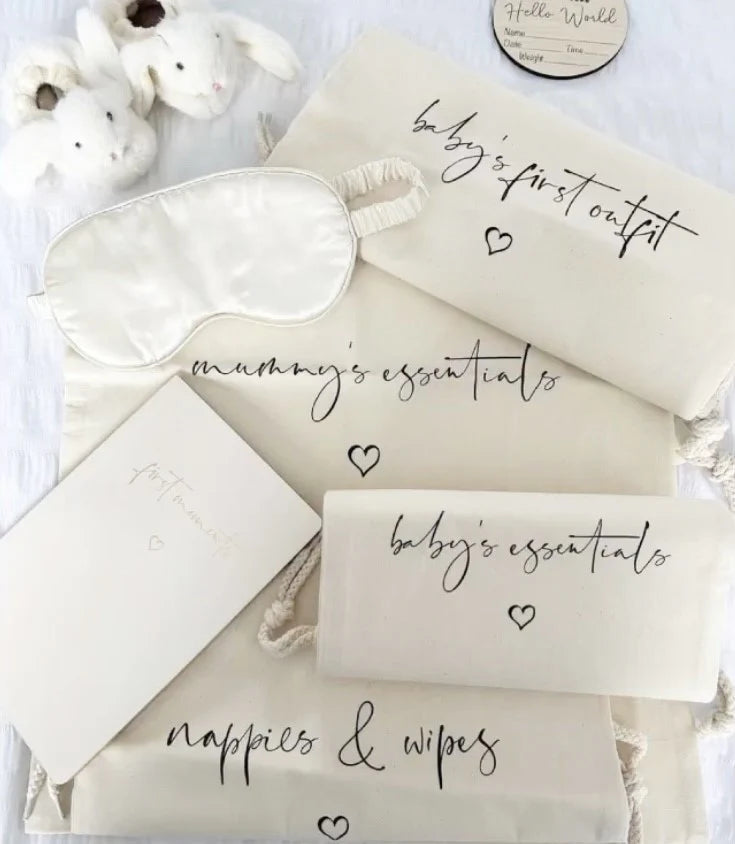 Hello World
Name
Date Time
Weight
baby's first outfit
mummy's essentials
first moments
baby's essentials
nappies & wipes